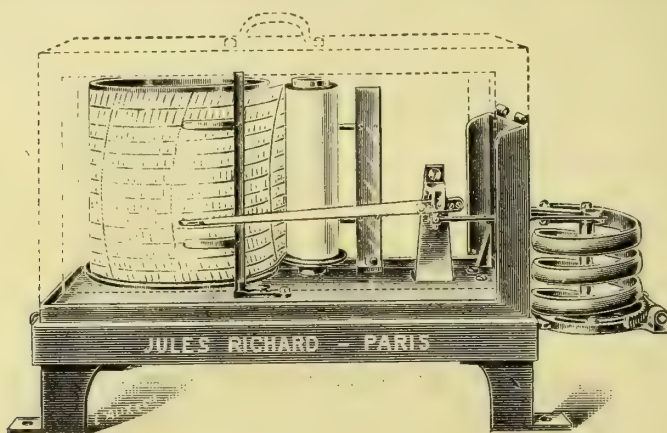 JULES RICHARD – PARIS